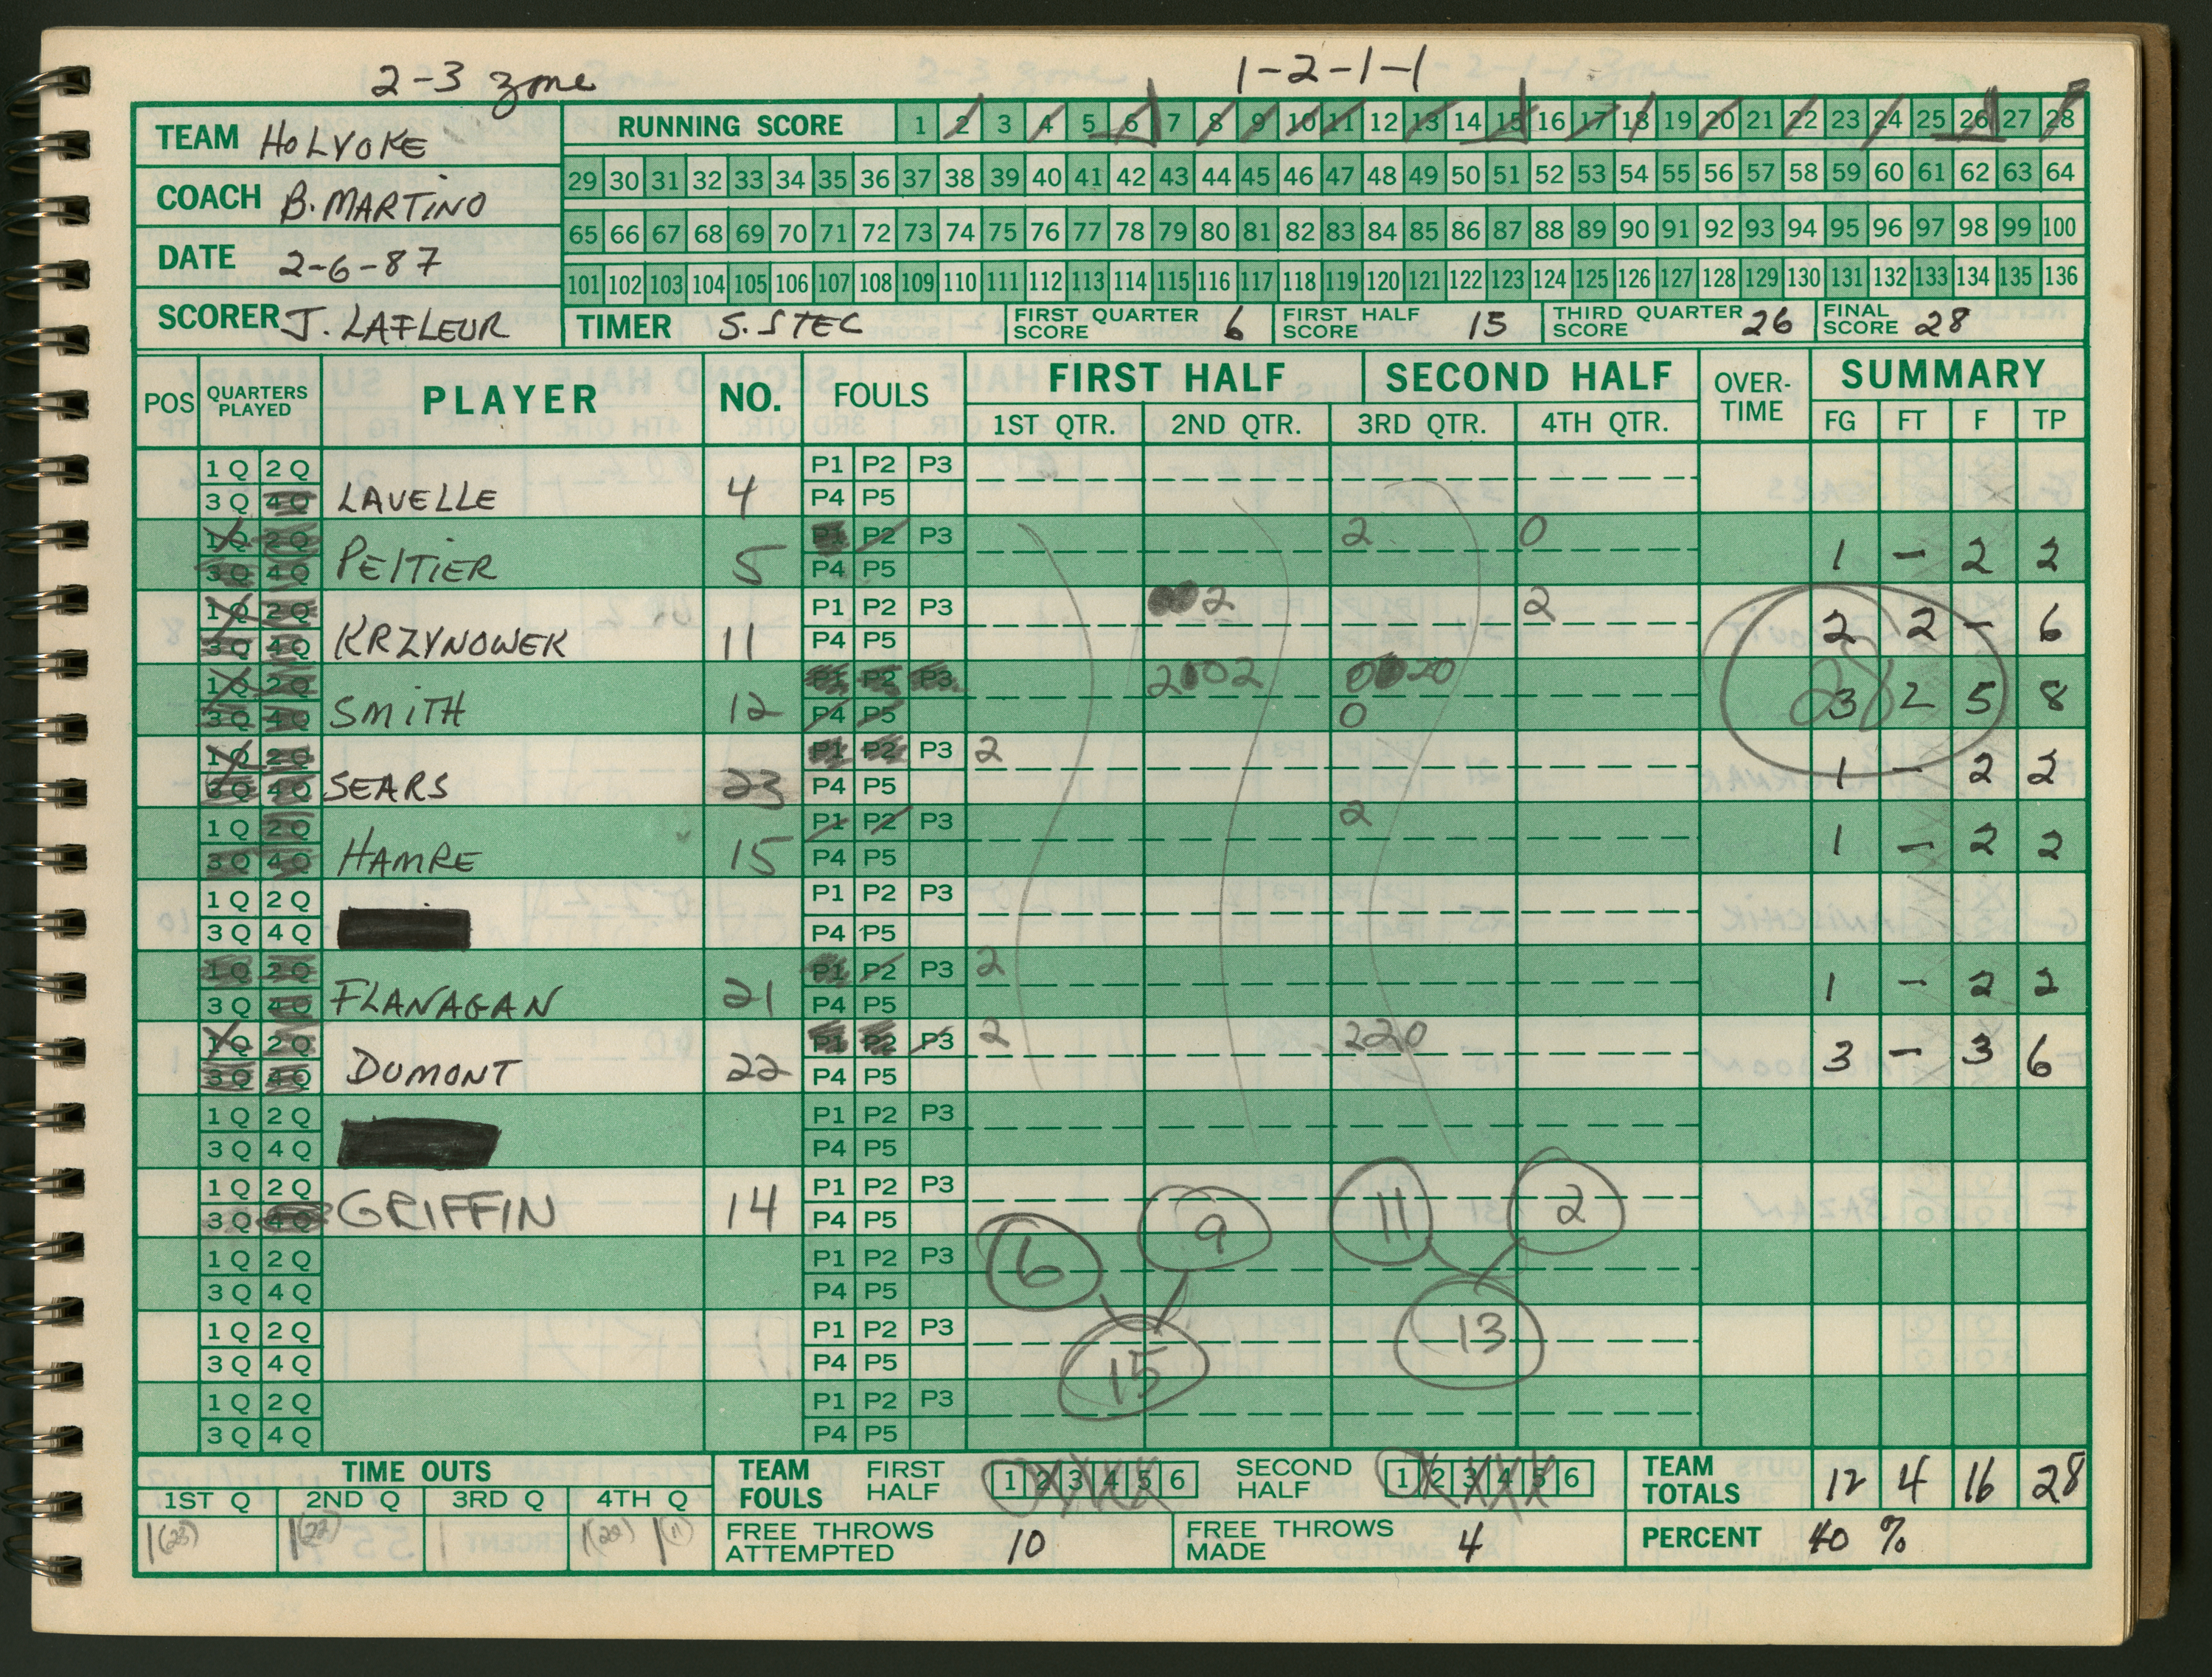 2-3 zone 1-2-1-1
TEAM HOLYOKE
COACH B. MARTINO
DATE 2-6-87
SCORER J. LAFLEUR
RUNNING SCORE 1 2 3 4 5 6 7 8 9 10 11 12 13 14 15 16 17 18 19 20 21 22 23 24 25 26 27 28
29 30 31 32 33 34 35 36 37 38 39 40 41 42 43 44 45 46 47 48 49 50 51 52 53 54 55 56 57 58 59 60 61 62 63 64
65 66 67 68 69 70 71 72 73 74 75 76 77 78 79 80 81 82 83 84 85 86 87 88 89 90 91 92 93 94 95 96 97 98 99 100
101 102 103 104 105 106 107 108 109 110 111 112 113 114 115 116 117 118 119 120 121 122 123 124 125 126 127 128 129 130 131 132 133 134 135 136
TIMER S. STEC FIRST QUARTER SCORE 6 FIRST HALF SCORE 15 THIRD QUARTER SCORE 26 FINAL SCORE 28
POS QUARTERS PLAYED PLAYER NO. FOULS FIRST HALF SECOND HALF OVER-TIME SUMMARY
1ST QTR. 2ND QTR. 3RD QTR. 4TH QTR. FG FT F TP
1Q 2Q P1 P2 P3
3Q 4Q LAVELLE 4 P4 P5
1Q 2Q P1 P2 P3 2 0
3Q 4Q PELTIER 5 P4 P5 1 - 2 2
1Q 2Q P1 P2 P3 2 2
3Q 4Q KRZYNOWEK 11 P4 P5 2 2 - 6
1Q 2Q P1 P2 P3
3Q 4Q SMITH 12 P4 P5 0 3 2 5 8
1Q 2Q P1 P2 P3 2
3Q 4Q SEARS 23 P4 P5 1 - 2 2
1Q 2Q P1 P2 P3 2
3Q 4Q HAMRE 15 P4 P5 1 - 2 2
1Q 2Q P1 P2 P3
3Q 4Q P4 P5
1Q 2Q P1 P2 P3 2
3Q 4Q FLANAGAN 21 P4 P5 1 - 2 2
1Q 2Q P1 P2 P3 2 220
3Q 4Q DUMONT 22 P4 P5 3 - 3 6
1Q 2Q P1 P2 P3
3Q 4Q P4 P5
1Q 2Q P1 P2 P3
3Q 4Q GRIFFIN 14 P4 P5
6 9 11 2
1Q 2Q P1 P2 P3
3Q 4Q P4 P5
1Q 2Q P1 P2 P3
3Q 4Q P4 P5
15 13
1Q 2Q P1 P2 P3
3Q 4Q P4 P5
TIME OUTS
1ST Q 2ND Q 3RD Q 4TH Q
1(23) 1(22) 1(11)
TEAM FOULS FIRST HALF 1 2 3 4 5 6 SECOND HALF 1 2 3 4 5 6
FREE THROWS ATTEMPTED 10 FREE THROWS MADE 4
TEAM TOTALS 12 4 16 28
PERCENT 40 %